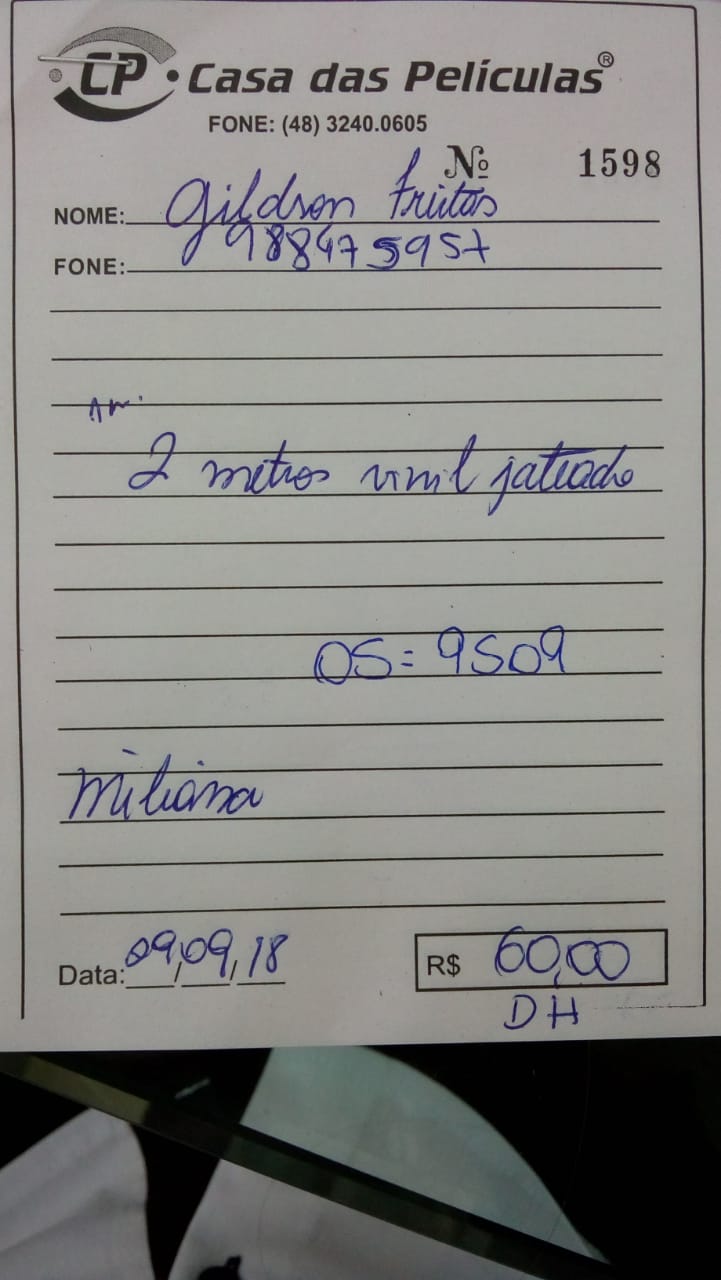 CP • Casa das Películas®
FONE: (48) 3240.0605
Nº 1598
NOME: Gildson Freitas
FONE: 988475957
2 metros vinil jateado
OS = 9509
Data: 09/09/18 R$ 60,00
DH